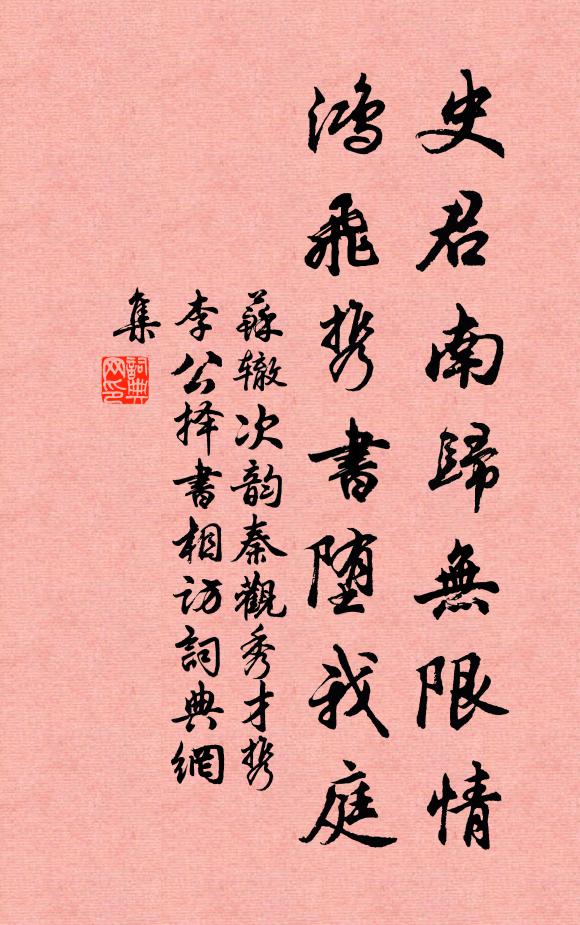 史君南歸無限情
鴻飛携書堕我庭
蘇辙次韵秦觀秀才携
李公择書相访詞典網
集
詞典
网印